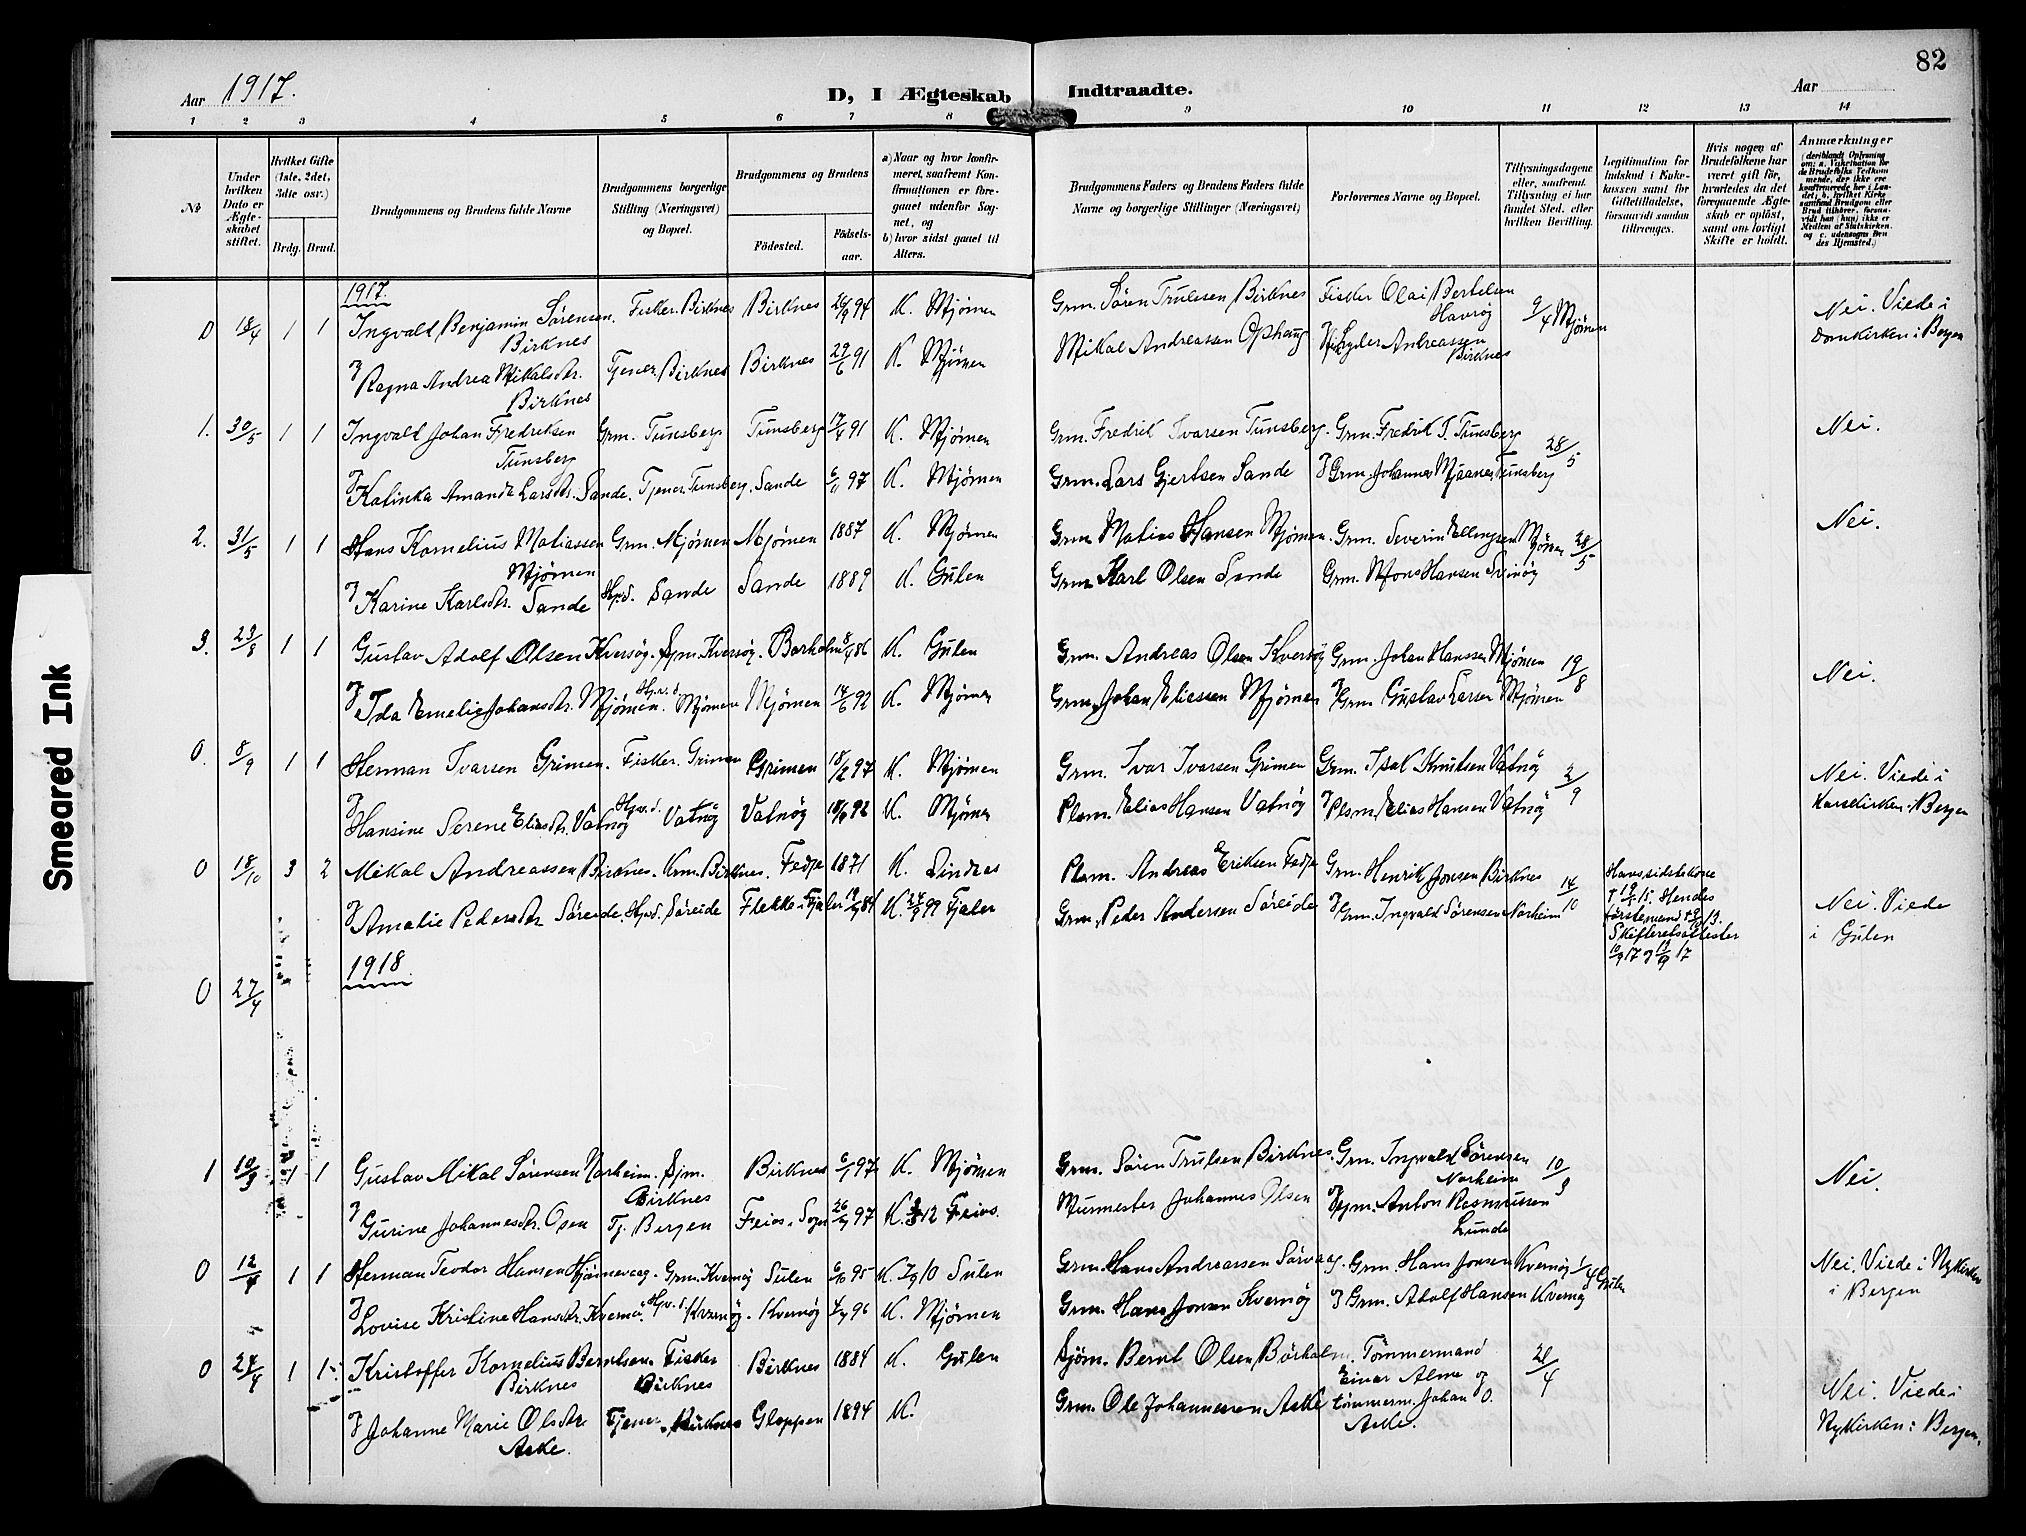 82
Aar 1917.
D, I Ægteskab Indtraadte.
Aar
1 2 3 4 5 6 7 8 9 10 11 12 13 14
No
Under hvilken Dato er Ægteskabet stiftet.
Hvilket Gifte (1ste, 2det, 3die osv.)
Brdg. Brud.
Brudgommens og Brudens fulde Navne
Brudgommens borgerlige Stilling (Næringsvei) og Bopæl.
Brudgommens og Brudens
Födested.
Födselsaar.
a) Naar og hvor konfirmeret, saafremt Konfirmationen er foregaaet udenfor Sognet, og
b) hvor sidst gaaet til Alters.
Brudgommens Faders og Brudens Faders fulde Navne og borgerlige Stillinger (Næringsvei)
Forlovernes Navne og Bopæl.
Tillysningsdagene eller, saafremt Tillysning ei har fundet Sted, efter hvilken Bevilling.
Legitimation for Indskud i Enkekassen samt for Giftetilladelse, forsaavidt saadan tiltrænges.
Hvis nogen af Brudefolkene har været gift før, hvorledes da det foregaaende Ægteskab er opløst, samt om lovligt Skifte er holdt.
Anmærkninger
1917.
0 18/4 1 1 Ingvald Benjamin Sørensen Birknes Fisker. Birknes Birknes 26/9 94 K. Mjømen Grm. Sören Trulesen Birknes Fisker Olai Bertelsen Havrøy 9/4 Mjömen Nei. Viede i Domkirken i Bergen
Ragna Andrea Mikalsdtr. Birknes Tjener. Birknes Birknes 29/6 91 K. Mjömen Mikal Andreassen Ophaug Andreassen Birknes
1. 30/5 1 1 Ingvald Johan Fredriksen Tunsberg Grm. Tunsberg Tunsberg 17/4 91 K. Mjømen Grm. Fredrik Ivarsen Tunsberg. Grm. Fredrik I. Tunsberg 28/5 Nei.
Katinka Amanda Larsdtr. Sande. Tjener Tunsberg. Sande 97 K. Mjömen Grm. Lars Gjertsen Sande Grm. Johannes Tunsberg
2. 31/5 1 1 Hans Kornelius Matiassen Mjömen Grm. Mjömen Mjömen 1887 K. Mjømen Grm Matias Hansen Mjömen. Grm. Severin Ellingsen Mjömen 28/5 Nei.
Karine Karlsdtr. Sande Sande Sande 1889 K. Gulen Grm Karl Olsen Sande Grm. Mons Hansen
3. 23/8 1 1 Gustav Adolf Olsen Kversøy. Sjm. Kversøy. 8/4 86 K. Gulen Grm. Andreas Olsen Kversøy Grm. Johan Hanssen Mjömen 19/8 Nei.
Ida Emelie Johansdtr. Mjömen. Mjömen Mjömen 14/6 92 K. Mjømen Grm. Johan Eliassen Mjömen Grm Gustav Larsen Mjömen
0. 8/9 1 1 Herman Ivarsen Grimen. Fisker. Grimen Grimen 18/2 97 K. Mjömen Grm. Ivar Ivarsen Grimen Grm. Isak Knutsen Vatnöy 2/9 Nei. Viede i Korskirken i Bergen
Hansine Serene Eliasdtr. Vatnöy Vatnöy Vatnöy 92 K. Mjømen Plsm. Elias Hansen Vatnöy Plsm. Elias Hansen Vatnöy
0 18/10 3 2 Mikal Andreassen Birknes. Grm. Birknes. Fedje 1871 K. Lindås Plsm. Andreas Eriksen Fedje Grm. Henrik Jonsen Birknes 14/10 Hans sidste kone Hendes förstemand Skifteretsattester Nei. Viede i Gulen
Amalie Pedersdtr Søreide. Søreide Flekke i Fjaler 84 K. 99 Fjaler Grm. Peder Andersen Søreide Grm. Ingvald Sørensen Norheim
1918
0 27/4
1 10/3 1 1 Gustav Mikal Sørensen Norheim. Sjm. Birknes Birknes 6/1 97 K. Mjømen Grm. Sören Trulsen Birknes. Grm. Ingvald Sørensen Norheim 10/3 Nei.
Gurine Johannesdtr. Osen Tj. Bergen Feios i Sogn 97 K. 12 Feios. Murmester Johannes Olsen Sjm. Anton Rasmussen Lunde
0 12/4 1 1 Herman Teodor Hansen. Grm. Kvernöy Sulen 6/10 95 K. 10 Sulen Grm. Hans Andreassen Grm. Hans Jonsen Kvernöy Gulen Nei. Viede i Nykirken i Bergen
Lovise Kristine Hansdtr. Kvernö. Kvernöy. Kvernöy 96 K. Mjömen Grm. Hans Jonsen Kvernöy Grm. Adolf Hansen Kvernöy
0 24/4 1 1 Kristoffer Kornelius Berntsen Birknes Fisker Birknes Birknes 1884 K. Gulen Sjøm. Bernt Olsen Börholm. Tömmermand Einar Alme og tömmerm. Johan O. Aske. 21/4 Nei. Viede i Nykirken i Bergen.
Johanne Marie Olsdtr Aske. Tjener. Birknes Gloppen 1894 K. Grm. Ole Johannesen Aske
Smeared Ink